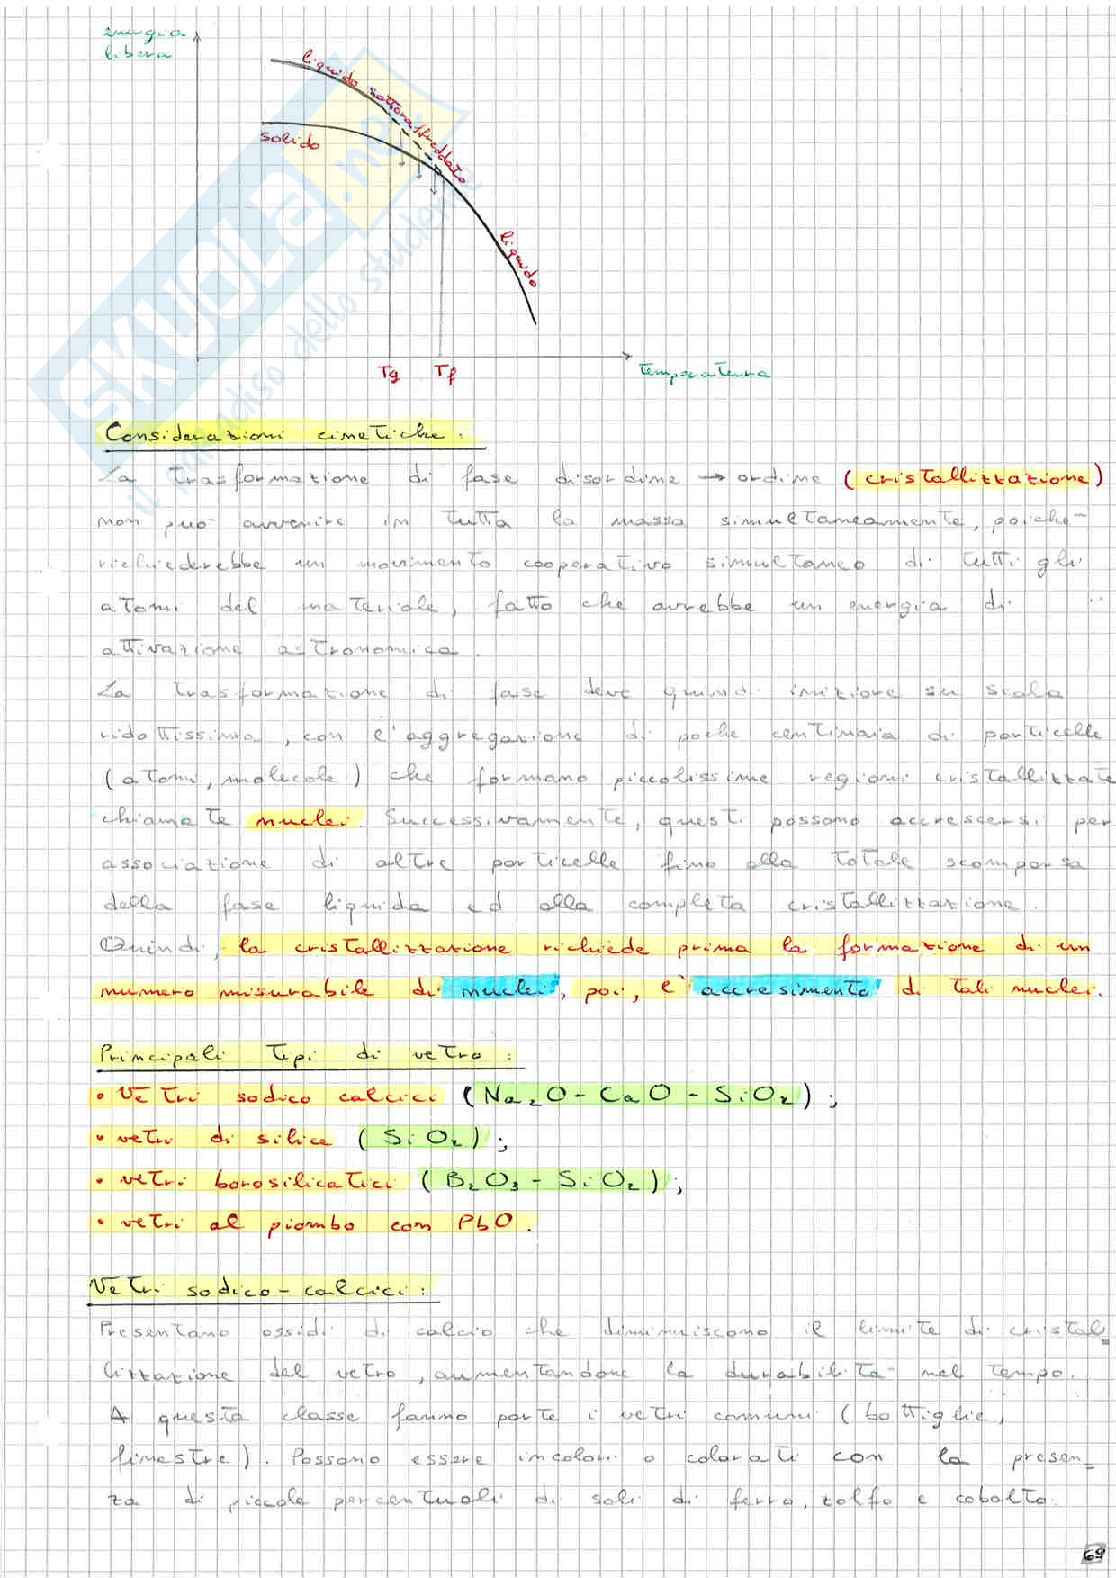 energia
libera
liquido sottoraffreddato
solido
liquido
Tg Tf
temperatura
SKUOLA.net
il paradiso dello studente
Considerazioni cinetiche:
La trasformazione di fase disordine → ordine (cristallizzazione)
non può avvenire in tutta la massa simultaneamente, poiché
richiederebbe un movimento cooperativo simultaneo di tutti gli
atomi del materiale, fatto che avrebbe un energia di
attivazione astronomica.
La trasformazione di fase deve quindi iniziare su scala
ridottissima, con l'aggregazione di poche centinaia di particelle
(atomi, molecole) che formano piccolissime regioni cristallizzate
chiamate nuclei. Successivamente, questi possono accrescersi per
associazione di altre particelle fino alla totale scomparsa
della fase liquida ed alla completa cristallizzazione.
Quindi, la cristallizzazione richiede prima la formazione di un
numero misurabile di nuclei, poi, l'accresimento di tali nuclei.
Principali tipi di vetro:
• Vetri sodico calcici (Na₂O - CaO - SiO₂);
• vetri di silice (SiO₂);
• vetri borosilicatici (B₂O₃ - SiO₂);
• vetri al piombo con PbO.
Vetri sodico-calcici:
Presentano ossidi di calcio che diminuiscono il limite di cristal_
lizzazione del vetro, aumentandone la durabilità nel tempo.
A questa classe fanno parte i vetri comuni (bottiglie,
finestre). Possono essere incolori o colorati con la presen_
za di piccole percentuali di sali di ferro, zolfo e cobalto.
69